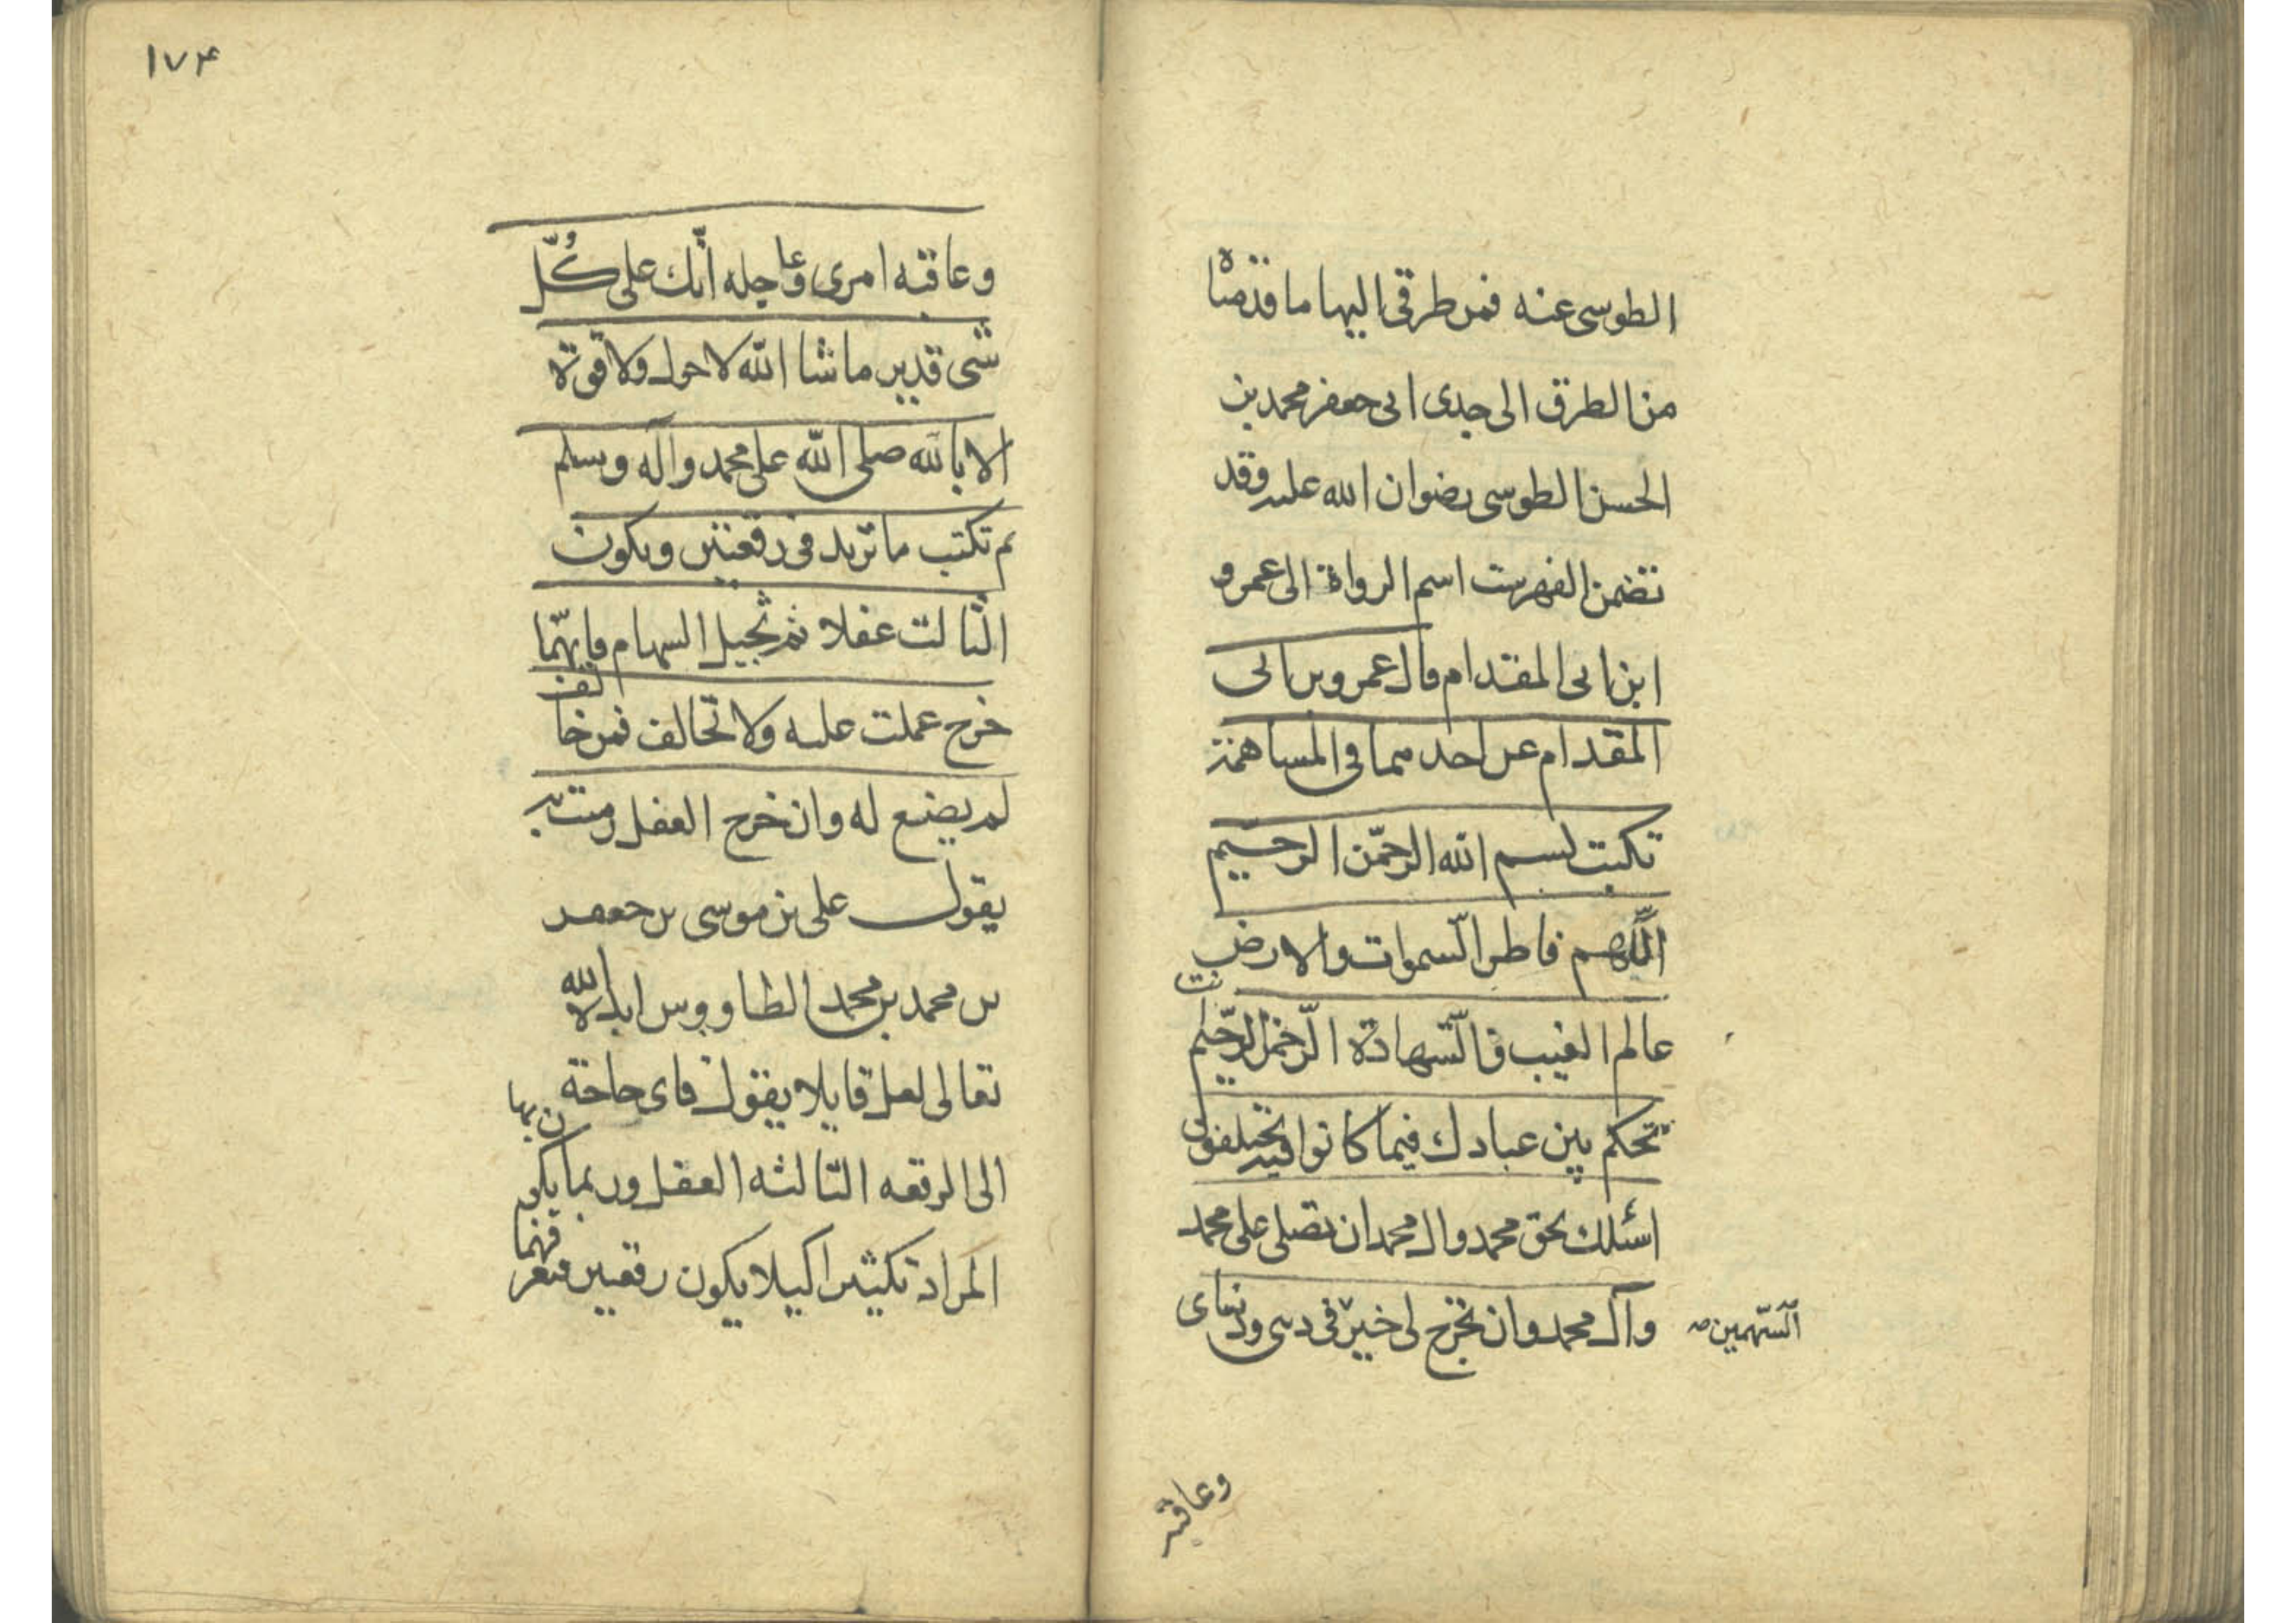 الطوسى عنه فمن طرقى اليها ما قدمناه
من الطرق الى جدى ابى جعفر محمد بن
الحسن الطوسى رضوان الله عليه وقد
تضمن الفهرست اسم الرواة الى عمرو
ابن ابى المقدام قال عمرو بن ابى
المقدام عن احدهما فى المساهمة
تكتب بسم الله الرحمن الرحيم
اللّهم فاطر السموات والارض انت
عالم الغيب والشهادة الرحمن الرحيم
تحكم بين عبادك فيما كانوا فيه يختلفون
اسئلك بحق محمد وال محمد ان تصلى على محمد
وآل محمد وان تخرج لى خير فى دينى ودنياى
السّهمين صه
وعاقبه
١٧۴
وعاقبه امرى وعاجله انّك على كُلّ
شى قدير ما شا الله لا حول ولا قوة
الا بالله صلى الله على محمد وآله وسلم
ثم تكتب ما تريد فى رقعتين ويكون
الثالث غفلا ثم تجيل السهام فايهما
خرج عملت عليه ولا تخالف فمن خالف
لم يصنع له وان خرج الغفل رميت به
يقول على بن موسى بن جعفر
بن محمد بن محمد الطاووس ايده الله
تعالى لعل قايلا يقول فاى حاجة
الى الرقعه الثالثه الغفل وربما يكون بها
المراد تكثيرا كيلا يكون رقعتين فتعرفهما